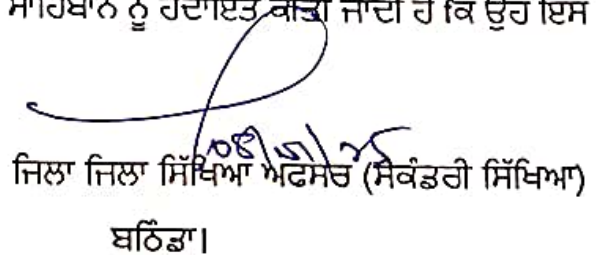 ਸਾਹਿਬਾਨ ਨੂੰ ਹਦਾਇਤ ਕੀਤੀ ਜਾਂਦੀ ਹੈ ਕਿ ਉਹ ਇਸ
ਜਿਲਾ ਜਿਲਾ ਸਿੱਖਿਆ ਅਫਸਰ (ਸੈਕੰਡਰੀ ਸਿੱਖਿਆ)
ਬਠਿੰਡਾ।